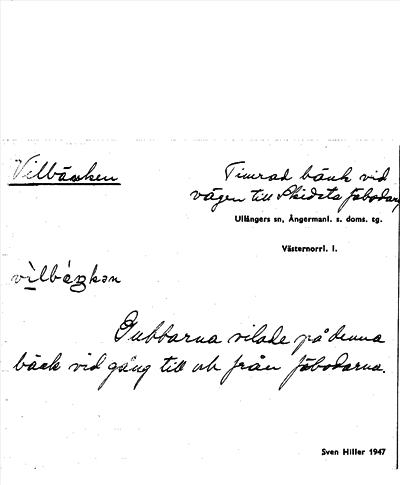 Vilbänken
Timrad bänk vid
vägen till Skidsta fäbodar
Ullångers sn, Ångermanl. s. doms. tg.
Västernorrl. l.
vìlbáŋkən
Gubbarna vilade på denna
bänk vid gång till och från fäbodarna.
Sven Hiller 1947